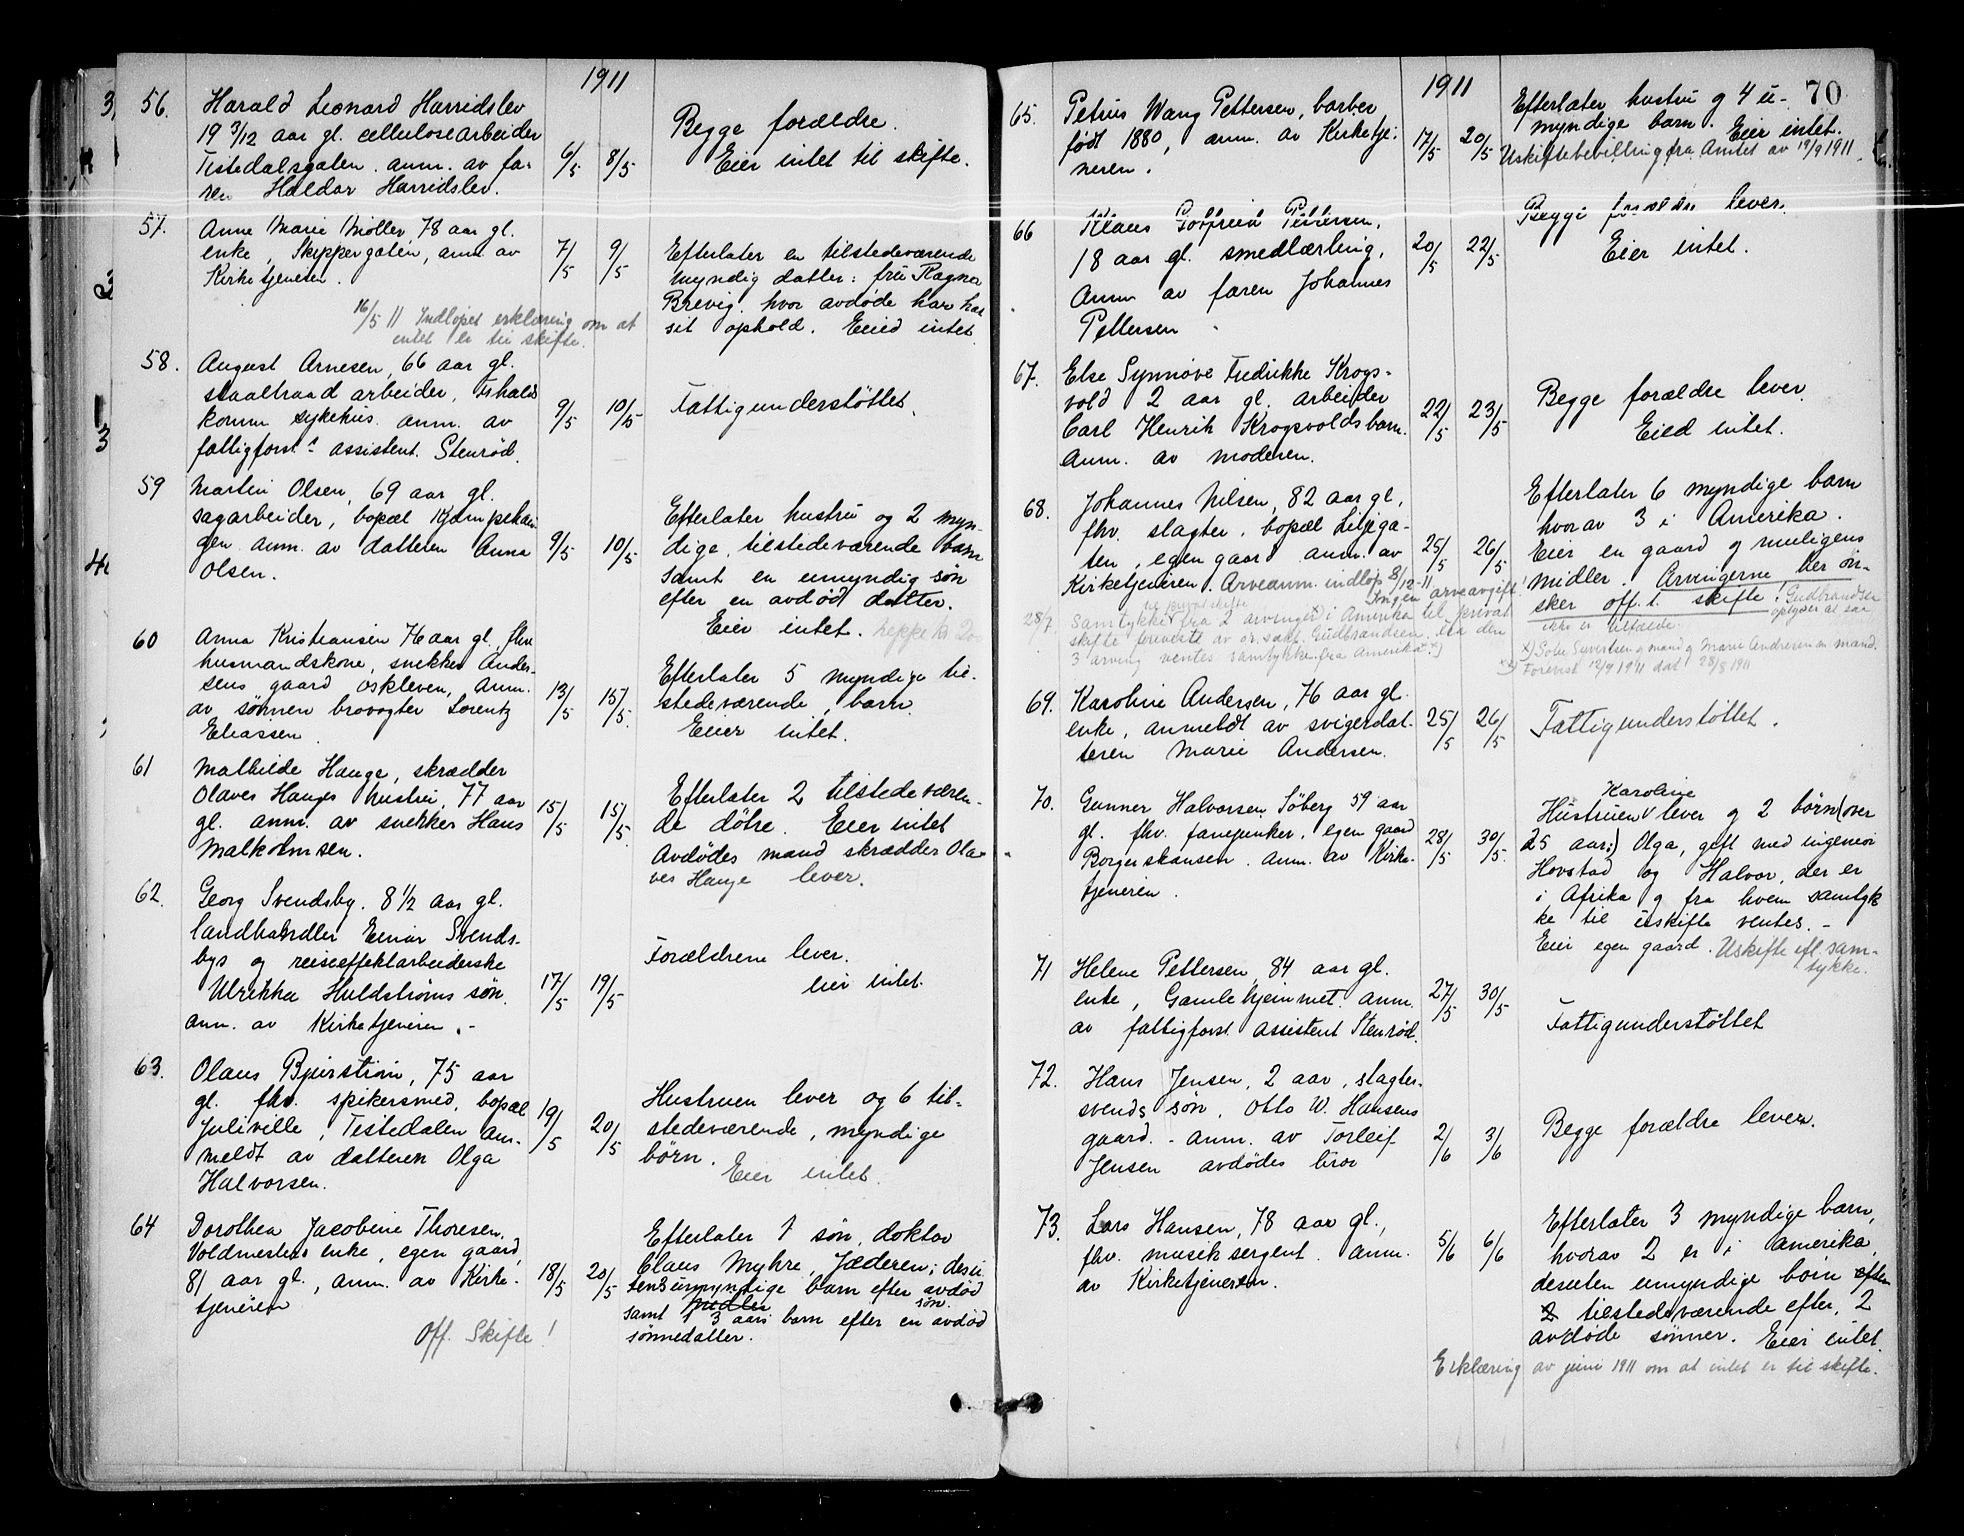 1911
56. Harald Leonard Harridslev
19 3/12 aar gl. cellulosearbeider
Tistedalsgaten. anm. av fa-
ren Haldor Harridslev.
6/5 8/5
Begge forældre.
Eier intet til skifte.
57. Anne Marie Møller 78 aar gl.
enke, Skippergaten, anm av
Kirketjeneren.
7/5 9/5
Efterlater en tilstedeværende
myndig datter: fru Ragna
Brevig. hvor avdøde har hat
sit ophold. Eied intet
16/5 11 Indløpet erklæring om at
intet er til skifte.
58. August Arnesen, 66 aar gl.
staaltraad arbeider, Frhalds
komm sykehus. anm. av
fattigforst. assistent. Stenrød.
9/5 10/5
Fattigunderstøttet.
59 Martin Olsen, 69 aar gl.
sagarbeider, bopæl
anm. av datteren Anna
Olsen.
9/5 10/5
Efterlater hustru og 2 myn-
dige, tilstedeværende barn
samt en umyndig søn
efter en avdød datter.
Eier intet.
60 Anna Kristiansen 76 aar gl. fhv
husmandskone, snekker Ander-
sens gaard oskleven, Anm.
av sønnen brovogter Lorentz
Eliassen
13/5 15/5
Efterlater 5 myndige til-
stedeværende, barn.
Eier intet.
61 Mathilde Hauge, skrædder
Olaves Hauges hustru, 77 aar
gl. anm. av snekker Hans
Malkolmsen.
15/5 15/5
Efterlater 2 tilstedeværen-
de døtre. Eier intet
Avdødes mand skrædder Ola-
ves Hauge lever.
62. Georg Svendsby. 8 1/2 aar gl.
landhandler Einar Svends-
bys og reiseeffektarbeiderske
Ulrikke Huldstrøms søn.
anm. av Kirketjeneren.-
17/5 19/5
Forældrene lever.
Eier intet.
63. Olaus Bjerstrøm, 75 aar
gl. fhv. spikersmed, bopæl
Juliville, Tistedalen an-
meldt av datteren Olga
Halvorsen.
19/5 20/5
Hustruen lever og 6 til-
stedeværende, myndige
børn.
Eier intet.
64 Dorothea Jacobine Thoresen,
Voldmesters enke, egen gaard,
81 aar gl., anm. av Kirke-
tjeneren
18/5 20/5
Efterlater 1 søn, doktor
Claus Myhre, Jæderen; desu
ten umyndige barn efter avdød
søn.
samt 1 3 aars barn efter en avdød
sønnedatter.
Off. Skifte!
1911
70
65. Petrus Wang Pettersen, barber
født 1880, anm. av Kirketje-
neren.
17/5 20/5
Efterlater hustru og 4 u-
myndige barn. Eier intet.
Uskiftebevilling fra Amtet av 19/9 1911.
66 Klaus Gotfried Pettersen,
18 aar gl. smedlærling,
Anm av faren Johannes
Pettersen
20/5 22/5
Begge forældre lever.
Eier intet.
67. Else Synnøve Fredrikke Krogs-
vold 2 aar gl. arbeider
Carl Henrik Krogsvolds barn.
Anm. av moderen.
22/5 23/5
Begge forældre lever.
Eied intet.
68. Johannes Nilsen, 82 aar gl,
fhv. slagter, bopæl Liljega-
ten, egen gaard anm. av
Kirketjeneren. Arveanm. indløp 8/12-11
Ingen arveavgift!
25/5 26/5
Efterlater 6 myndige barn
hvorav 3 i Amerika.
Eier en gaard og muligens
midler. Arvingerne her øn-
sker off. skifte! Gudbrandsen
oplyser at saa
ikke er tilfælde.
28/7 Samtykke fra 2 arvinger i Amerika til privat
skifte foreviste av or.sakf. Gudbrandsen. Fra den
3 arving ventes samtykke fra Amerika.
Sofie Syvertsen og mand og Marie Andresen og mand.
Forevist 12/9 1911 dat 28/8 1911
69. Karoline Andersen, 76 aar gl.
enke, anmeldt av svigerdat-
teren Marie Andersen.
25/5 26/5
Fattigunderstøttet.
70. Gunner Halvorsen Søberg 59 aar
gl. fhv. fanejunker, egen gaard
Borgerskansen. Anm. av Kirke-
tjeneren.
28/5 30/5
Karoline
Hustruen lever og 2 børn (over
25 aar:) Olga, gift med ingeniør
Hovstad og Halvor, der er
i Afrika og fra hvem samtyk
ke til uskifte ventes.-
Eier egen gaard. Uskifte efl. sam-
tykke.
71 Helene Pettersen, 84 aar gl.
enke, Gamlehjemmet. Anm.
av fattigforst. assistent Stenrød.
27/5 30/5
Fattigunderstøttet
72. Hans Jensen, 2 aar, slagter-
svends søn, Otto W. Hansens
gaard. - anm. av Torleif
Jensen avdødes bror
2/6 3/6
Begge forældre lever.
73. Lars Hansen, 78 aar gl.,
fhv. musiksergent. Anm.
av Kirketjeneren.
5/6 6/6
Efterlater 3 myndige barn,
hvorav 2 er i Amerika,
desuten umyndige børn efter
tilstedeværende efter, 2
avdøde sønner. Eier intet.
Erklæring av juni 1911 om at intet er til skifte.